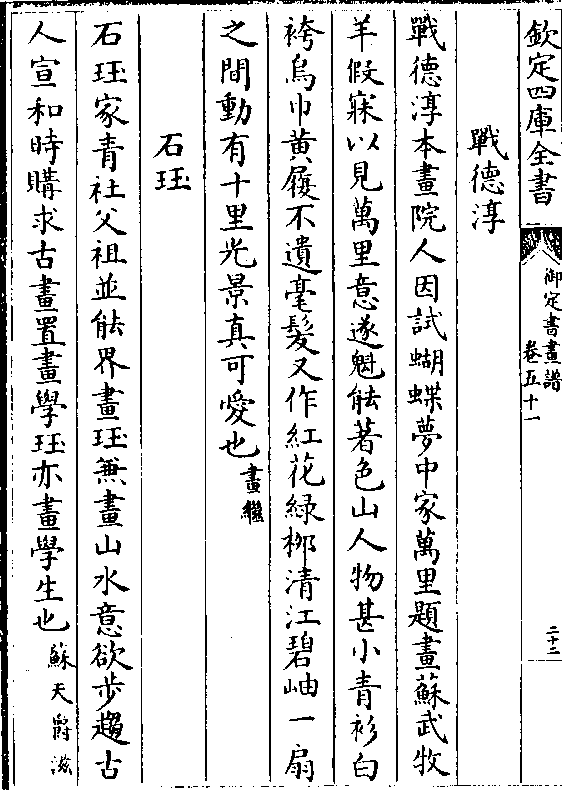 欽定四庫全書
御定書畫譜
卷五十一
二十三
戰德淳
戰德淳本畫院人因試蝴蝶夢中家萬里題畫蘇武牧
羊假寐以見萬里意遂魁能著色山人物甚小青衫白
袴烏巾黄履不遺毫髮又作紅花緑栁清江碧岫一扇
之間動有十里光景真可愛也畫繼
石珏
石珏家青社父祖並能界畫珏兼畫山水意欲步趨古
人宣和時購求古畫置畫學珏亦畫學生也蘇天爵滋